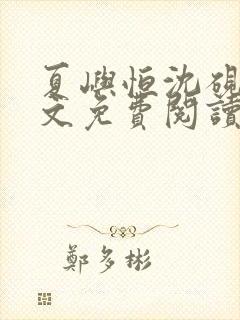 夏嶼恒沈硯
文免費閱讀
鄭多彬